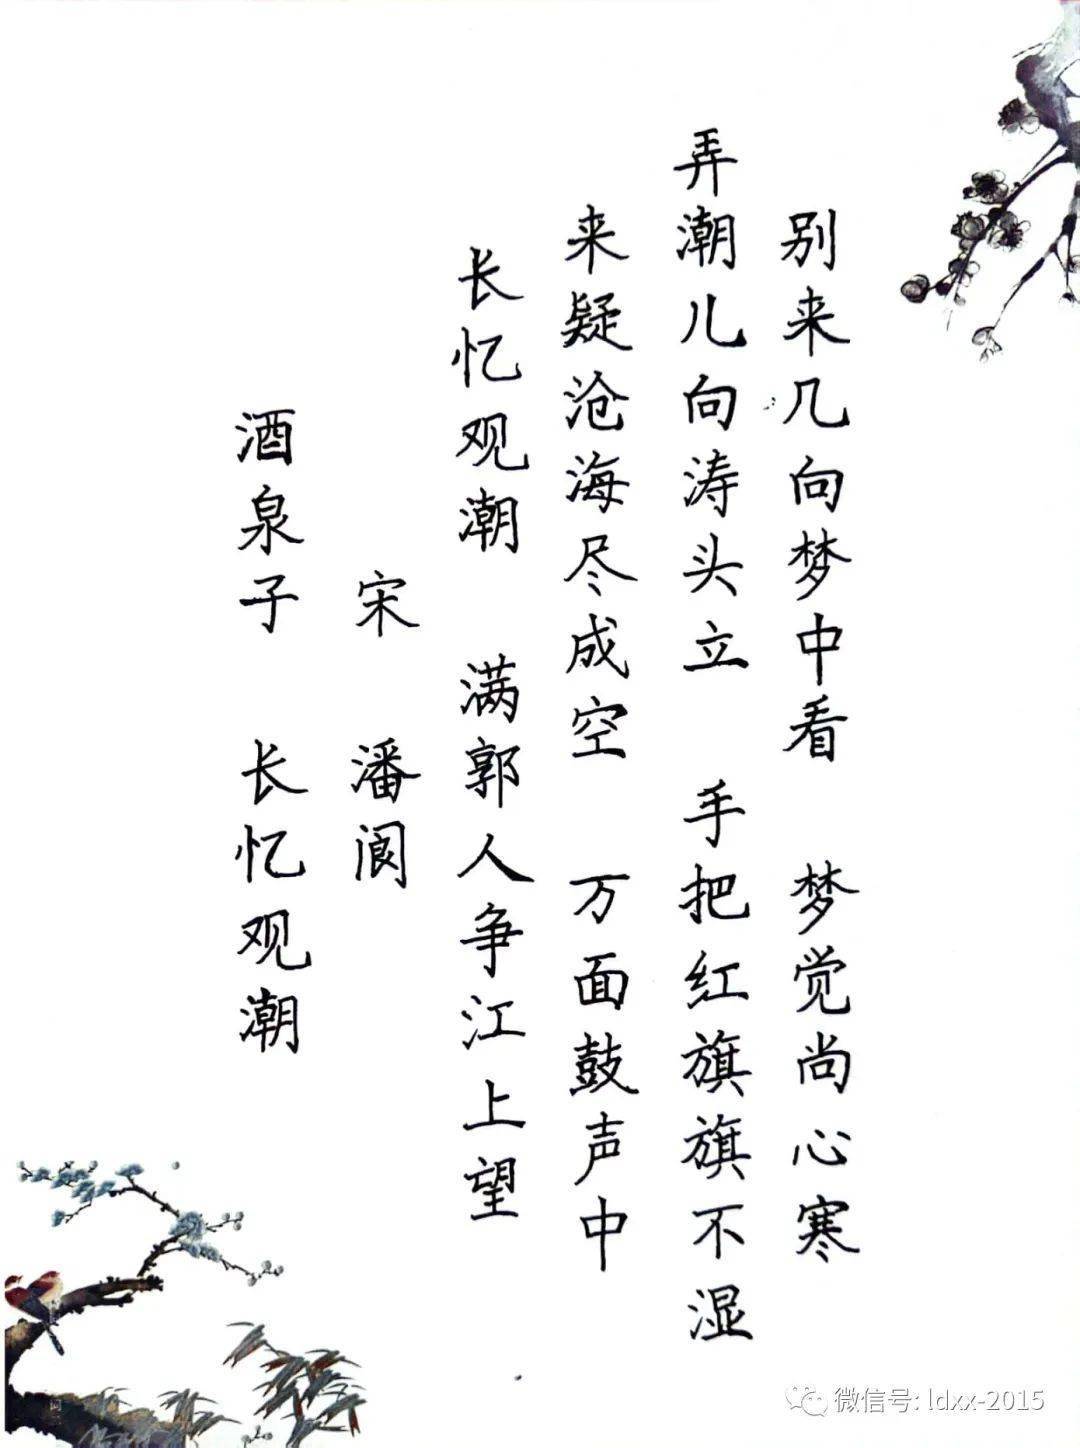 酒泉子 长忆观潮
宋 潘阆
长忆观潮 满郭人争江上望
来疑沧海尽成空 万面鼓声中
弄潮儿向涛头立 手把红旗旗不湿
别来几向梦中看 梦觉尚心寒
微信号: ldxx-2015